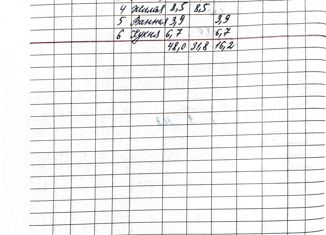 4 Жилая 8,5 8,5
5 Ванная 3,9 3,9
6 Кухня 6,7 6,7
48,0 31,8 16,2